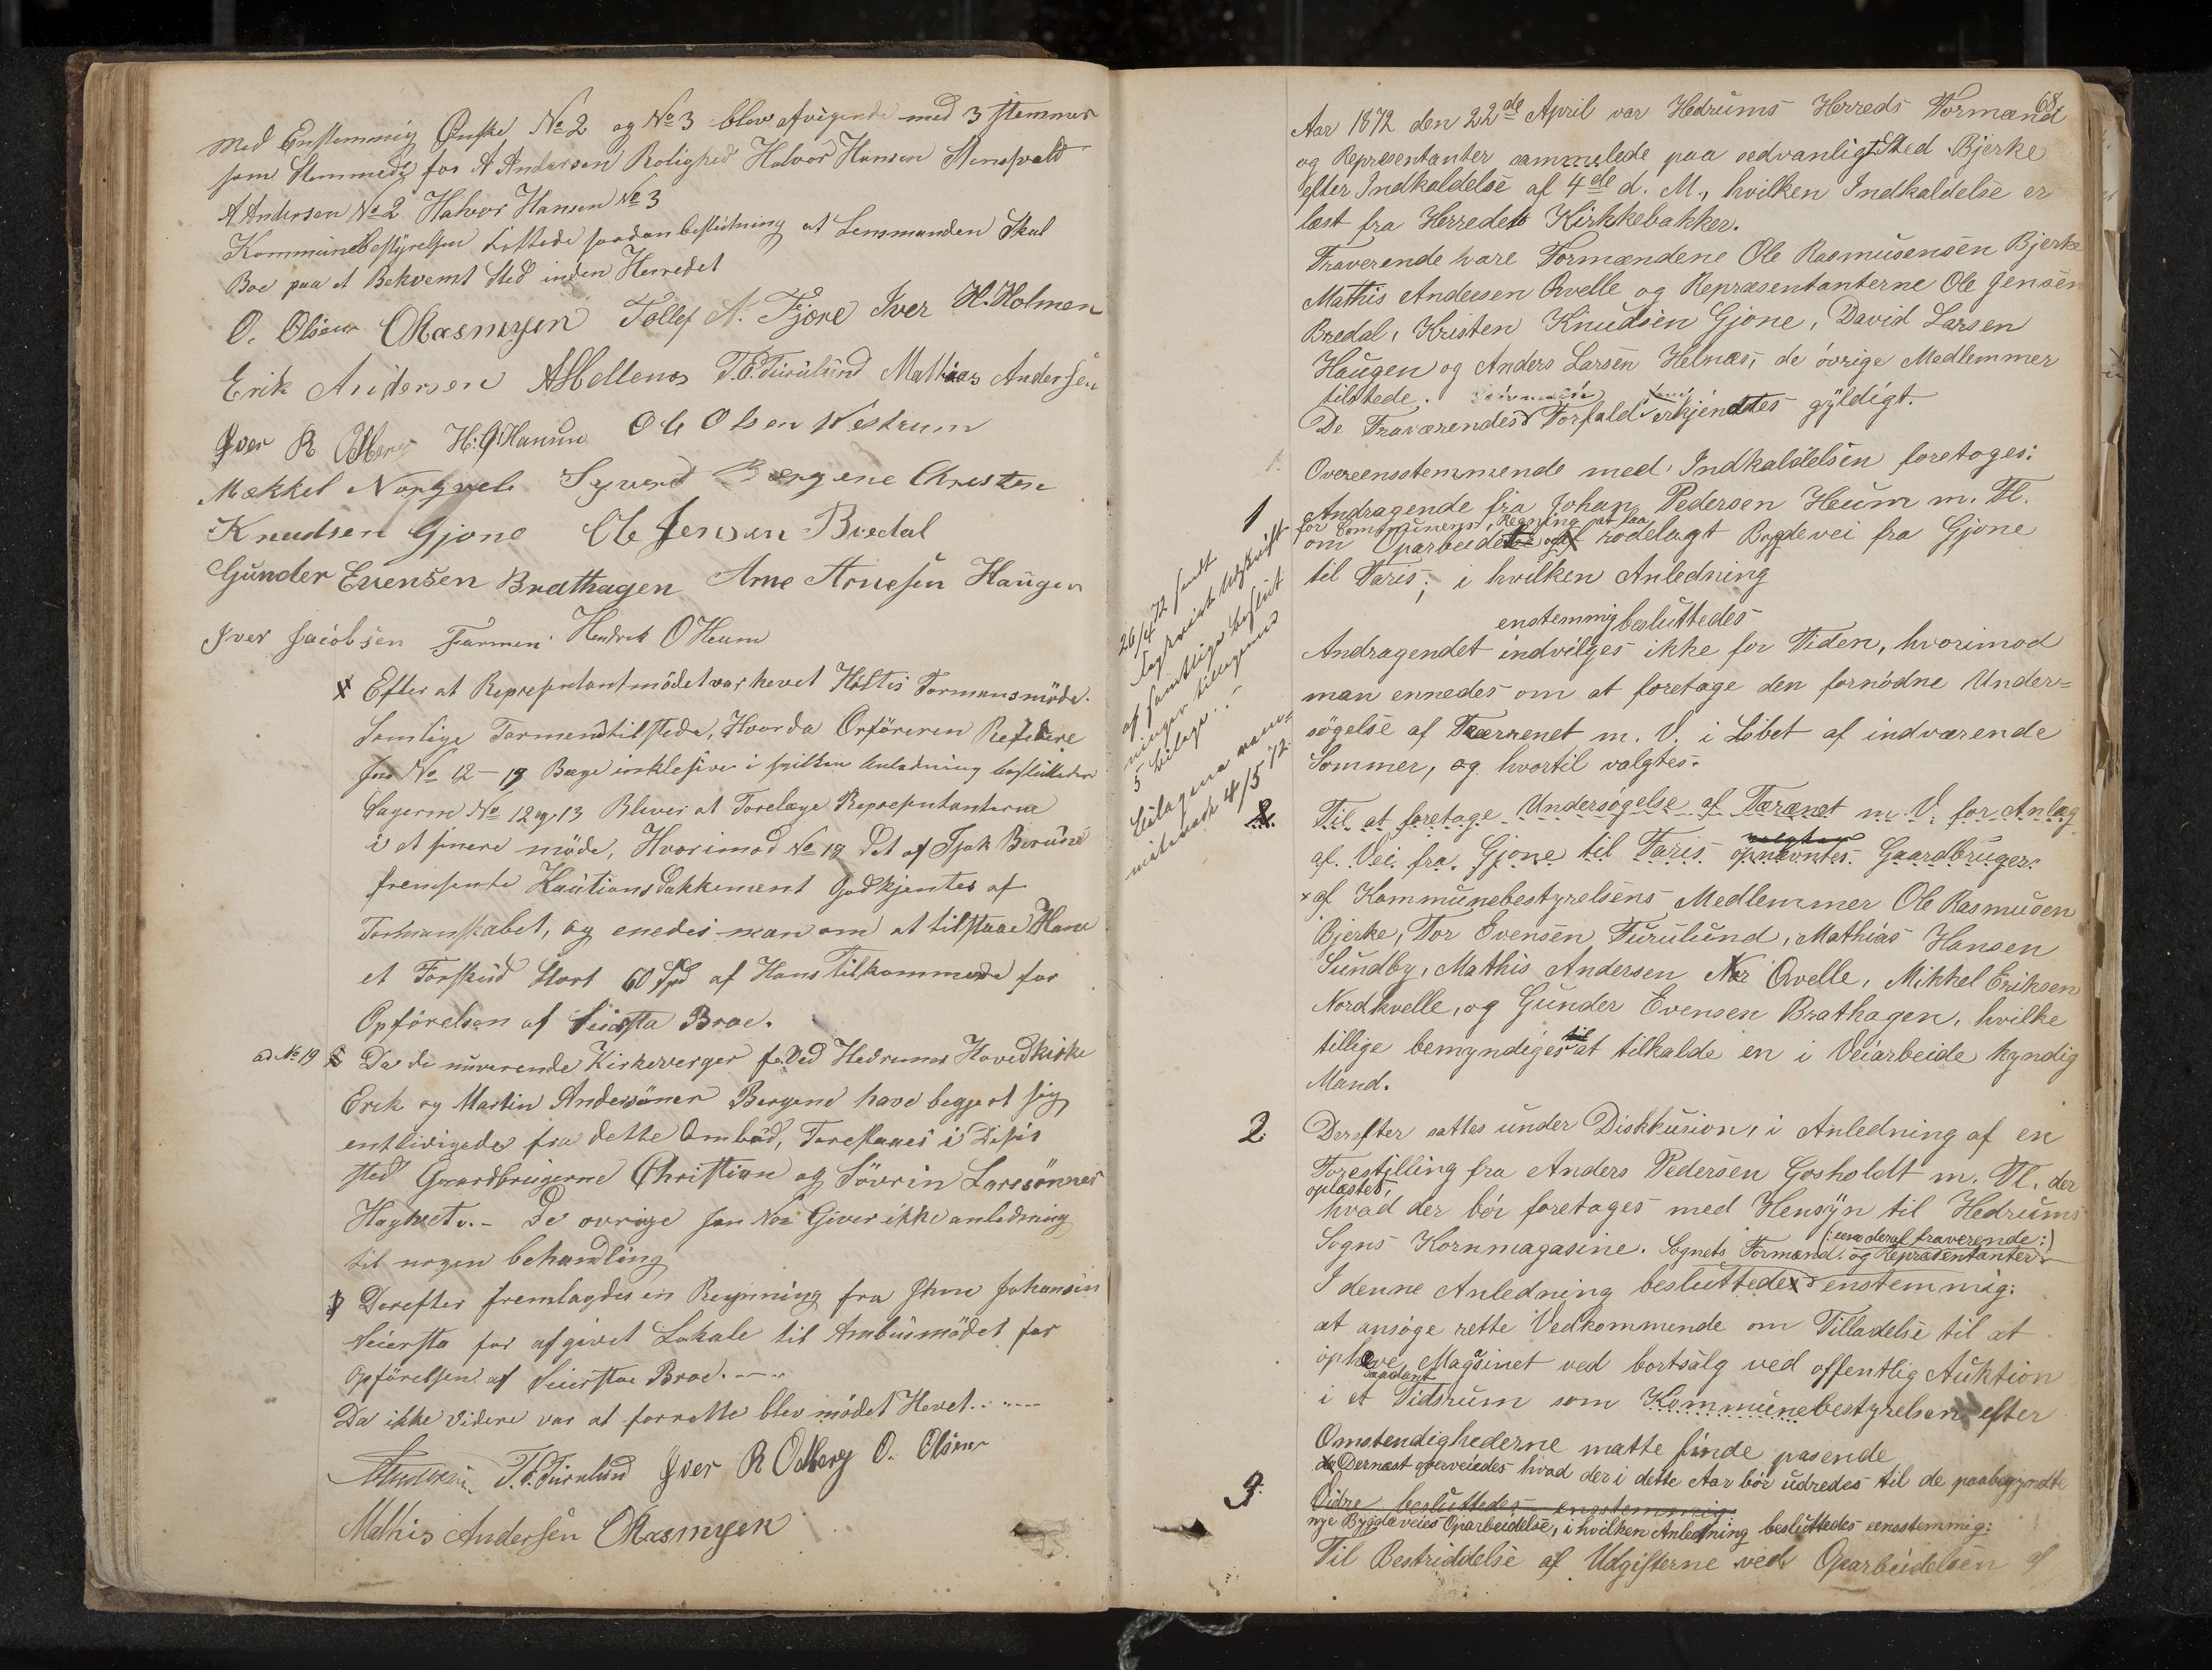 med Enstemmig Ønske No 2 og No 3 blev afvigende med 3 stemmer
som stemmede for A Andersen Rolighed Halvor Hansen
A Andersen No 2 Halvor Hansen No 3
Kommunebestyrelsen fattede saadan beslutning at Lensmanden Skal
Boe paa et Bekvemt Sted inden Herredet
O. Olsen ORasmusen Tollef N. Fjøre Iver H. Holmen
Erik Andersen T.E. Furulund Mathias Andersen
Iver R Ødberg H. G. Hansen Ole Olsen Westrum
Mækkel Norqvele Syvert Bergene Christen
Knudsen Gjone Ole Jensen Bredal
Gunder Evensen Brathagen Arne Arnesen Haugen
Iver Jacobsen Farmen Hendrik O Heum
Efter at Representantmödet var hevet Holtes Formensmöde.
Samlige Formend tilstede, Hvorda Orföreren Refererede
Sag No 12 – 19 Begge inklusive i hvilken Anledning besluttedes
Sagerne No 12 og 13 Bliver at Forelæge Representanterne
i et sinere möde, Hvorimod No 19 Det af Isak
fremsente Kautions Dokkement Godkjentes af
Formanskabet, og enedes man om at tilstaae Ham
et Forskud stort 60 Spd af Hans Tilkommende for
Opförelsen af Seiersta Broe.
ad No 19 Da de nuverende Kirkeverger ved Hedrums Hovedkirke
Erik og Martin Andersöner Bergene have begjert sig
entledigede fra dette Ombud, Forestaaes i Disses
sted Gaardbrugerne Christian og Sövrin Larssönner
Hagtvet. – De ovrige Giver ikke anledning
til nogen behandling
Derefter fremlagdes en Regning fra Johansen
Seiersta for afgivet Lokale til Anbusmödet for
Opförelsen af Seierstae Broe.
Da ikke Videre var at forrette blev mödet Hevet.
T. E. Furulund Iver R Ødberg O. Olsen
Mathis Andersen ORasmusen
68
Aar 1872 den 22de April var Hedrums Herreds Formænd
og Repræsentanter sammelede paa sedvanligt Sted Bjerke
efter Indkaldelse af 4de d. M., hvilken Indkaldelse er
læst fra Herredets Kirkkebakker.
Fraverende vare Formændene Ole Rasmusensen Bjerke
Mathis Andersen Qvelle og Repræsentanterne Ole Jensen
Bredal, Kristen Knudsen Gjone, David Larsen
Haugen og Anders Larsen Helnæs, de övrige Medlemmer
tilstede.
De Fraværendes Forfald erkjendtes gyldigt.
Overeensstemmende med Indkaldelsen foretoges:
1
Andragende fra Johan Pedersen Heum m. Fl.
for Communens Regning at faa
om Oparbeidet rodelagt Bygdevei fra Gjone
til Faris; i hvilken Anledning
enstemmig besluttedes
Andragendet indvilges ikke for Tiden, hvorimod
man ennedes om at foretage den fornödne Under=
sögelse af Tærrenet m. V. i Löbet af indværende
Sommer, og hvortil valgtes:
26/4 72 sendt
Sogneraist Udskrift
af samtlige beslut
ninger tilligemed
5 bilage.
4/5 72
Til at foretage Undersögelse af Tærænet m. V. for Anlæg
af Vei fra Gjone til Faris opnævntes Gaardbruger.
valgtes
af Kommunebestyrelsens Medlemmer Ole Rasmusen
Bjerke, Tor Evensen Furulund, Mathias Hansen
Sundby, Mathis Andersen Qvelle, Mikkel Eriksen
Nordkvelle, og Gunder Evensen Brathagen, hvilke
tillige bemyndiges til at tilkalde en i Veiarbeide kyndig
Mand.
2
Derefter sattes under Diskkusion, i Anledning af en
Forestilling fra Anders Pedersen Gosholdt m. Fl. der
oplæstes,
hvad der bör foretages med Hensyn til Hedrums
Sogns Kornmagasine. Sognets Formænd og Repræsentanter
(: een deraf fraverende :)
I denne Anledning besluttedes enstemmig:
at ansöge rette Vedkommende om Tilladelse til at
ophæve Magasinet ved bortsalg ved offentlig Auktion
saadant
i et Tidsrum som Kommunebestyrelsen efter
Omstendighederne matte finde pasende
3
Dernæst overveiedes hvad der i dette Aar bör udredes til de paabegyndte
Vidre besluttedes enstemmig:
nye Bygdeveies Oparbeidelse, i hvilken Anledning besluttedes eensstemmig:
Til Bestriddelse af Udgifterne ved Oparbeidelsen af